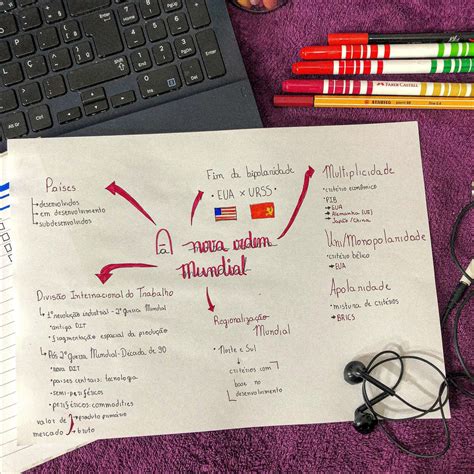 Fim da bipolaridade
• EUA x URSS •
Países
→ desenvolvidos
→ em desenvolvimento
→ subdesenvolvidos
A nova ordem
Mundial
Multiplicidade
• critério econômico
• PIB
→ EUA
→ Alemanha (UE)
→ Japão/China
Uni/Monopolaridade
• critério bélico
→ EUA
Apolaridade
• mistura de critérios
→ BRICS
Divisão Internacional do Trabalho
→ 1ª revolução industrial - 2ª Guerra Mundial
• antiga DIT
• fragmentação espacial da produção
→ Pós 2ª Guerra Mundial - Década de 90
• nova DIT
• países centrais: tecnologia
• semi-periféricos
• periféricos: commodities
valor de → produto primário
mercado → bruto
Regionalização
Mundial
• Norte e Sul
→ critérios com
base no
desenvolvimento
FABER-CASTELL
STABILO